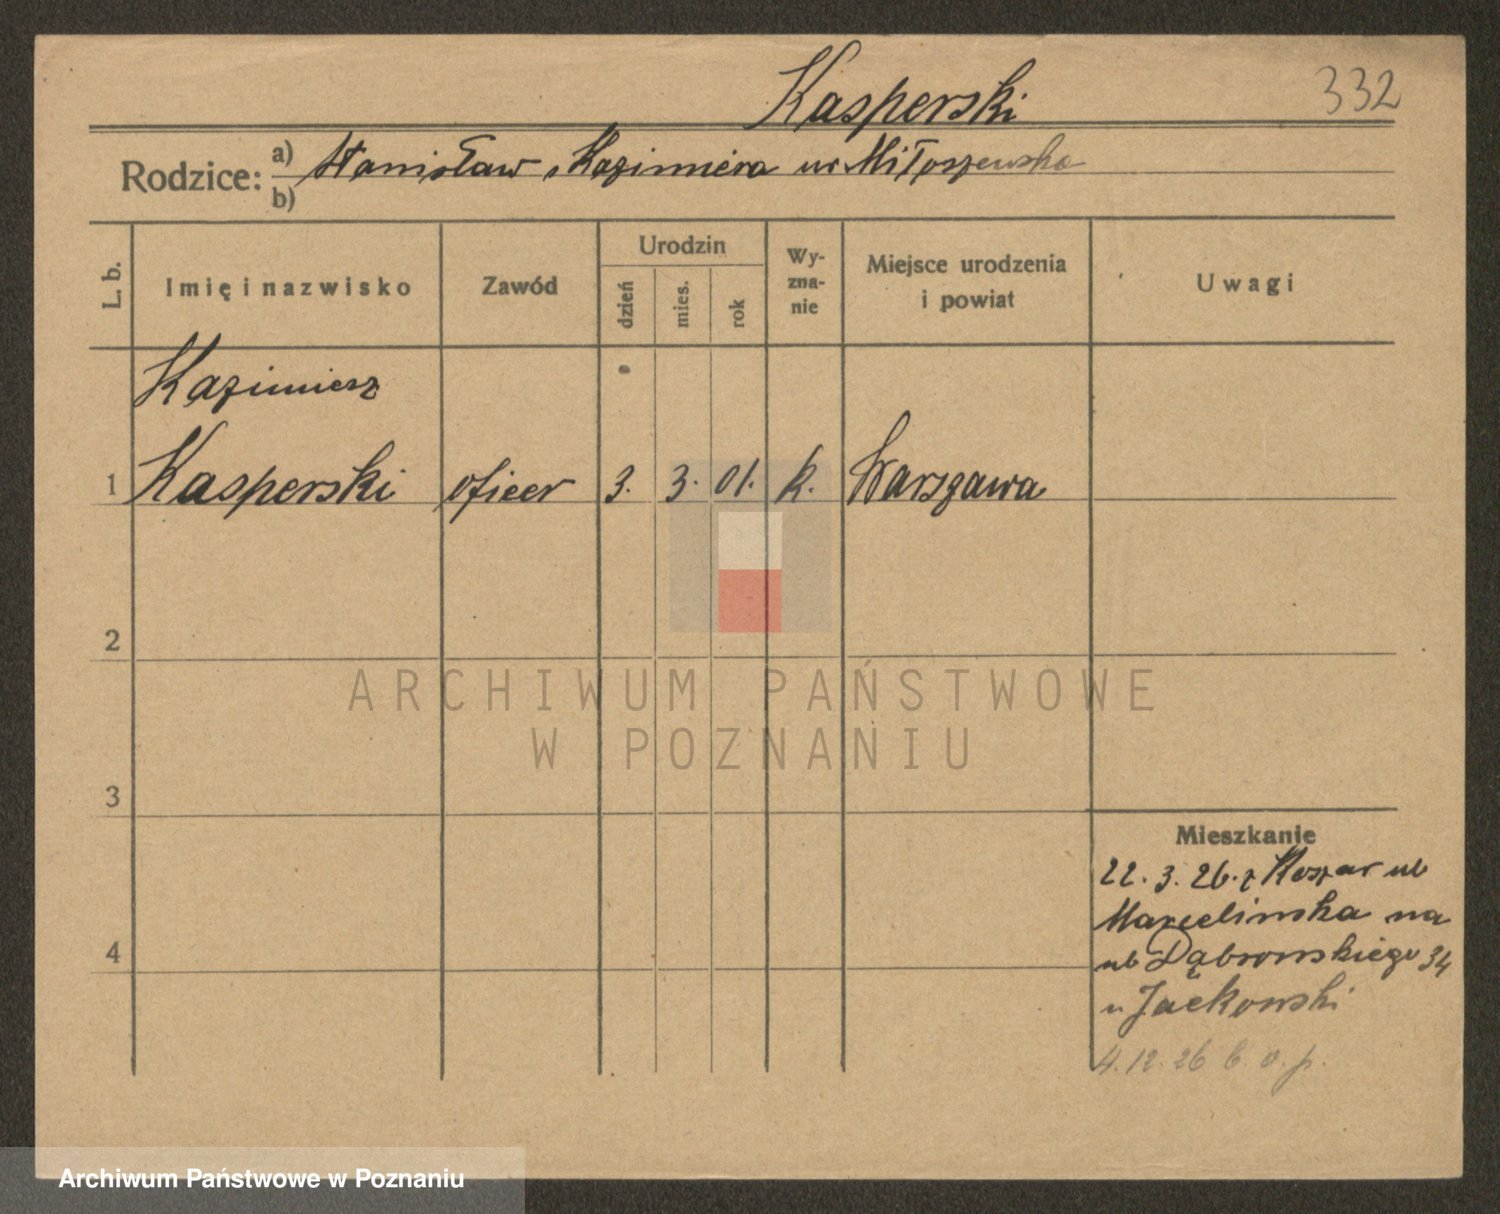 Kasperski
332
Rodzice:
a) Stanisław, Kazimiera ur Miłoszewska
b)
L. b.
Imię i nazwisko
Zawód
Urodzin
dzień
mies.
rok
Wy-
zna-
nie
Miejsce urodzenia
i powiat
Uwagi
Kazimierz
1 Kasperski oficer 3. 3. 01. k. Warszawa
2
3
4
Mieszkanie
22. 3. 26. z Koszar ul
Marcelinska na
ul Dąbrowskiego 34
u Jackowski
4. 12. 26 b. o. p.
ARCHIWUM PAŃSTWOWE
W POZNANIU
Archiwum Państwowe w Poznaniu